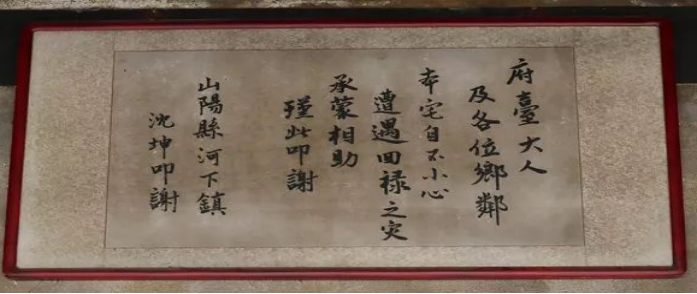 府臺大人
及各位鄉鄰
本宅自不小心
遭遇回禄之灾
承蒙相助
瑾此叩謝
山陽縣河下鎮
沈坤叩謝